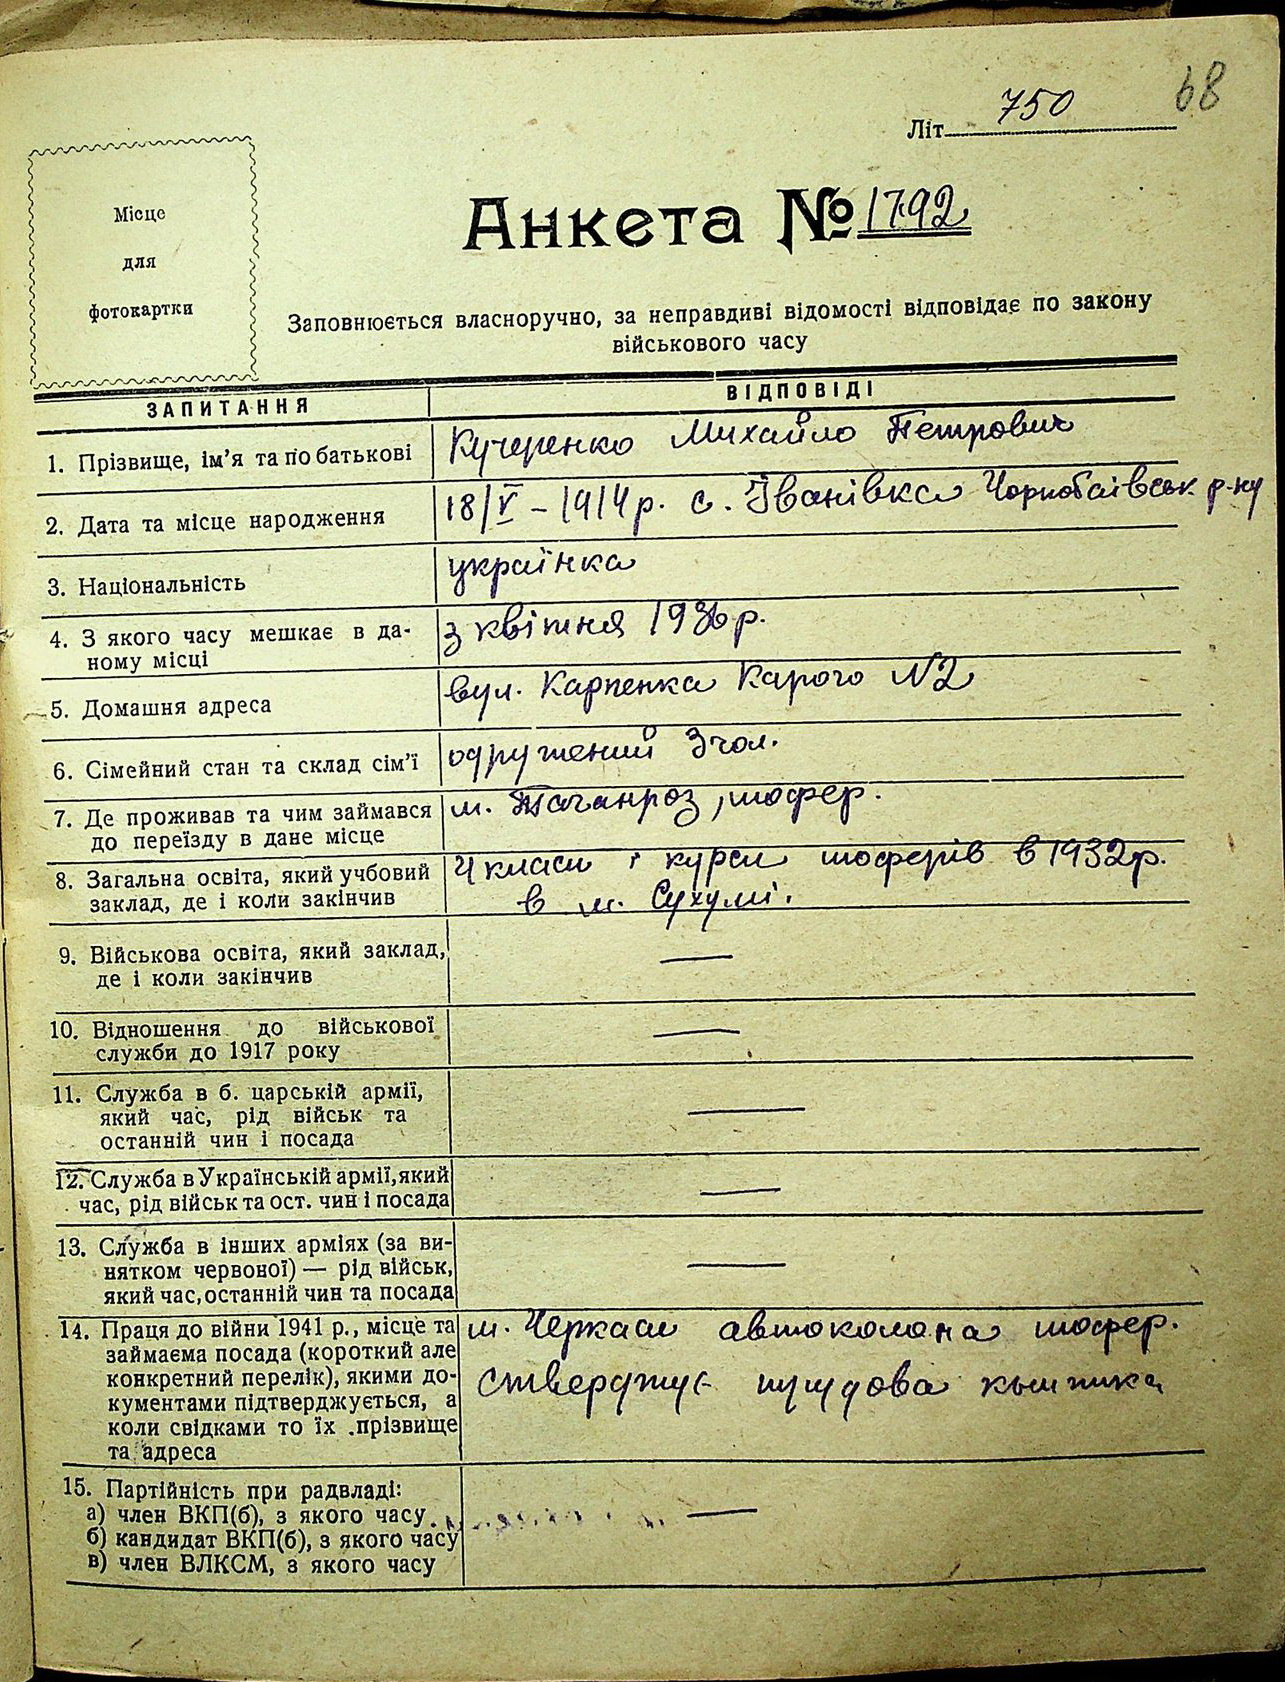 68
Літ 750
Місце
для
фотокартки
Анкета № 1792
Заповнюється власноручно, за неправдиві відомості відповідає по закону
військового часу
ЗАПИТАННЯ
ВІДПОВІДІ
1. Прізвище, ім'я та по батькові
Кучеренко Михайло Петрович
2. Дата та місце народження
18/V – 1914 р. с. Іванівка Чорнобаївськ. р-ну
3. Національність
українка
4. З якого часу мешкає в да-
ному місці
з квітня 1936 р.
5. Домашня адреса
вул. Карпенка Карого N2
6. Сімейний стан та склад сім'ї
одружений 3 чол.
7. Де проживав та чим займався
до переїзду в дане місце
м. Таганроз, шофер.
8. Загальна освіта, який учбовий
заклад, де і коли закінчив
4 класи і курси шоферів в 1932 р.
в м. Сухумі.
9. Військова освіта, який заклад,
де і коли закінчив
—
10. Відношення до військової
служби до 1917 року
—
11. Служба в б. царській армії,
який час, рід військ та
останній чин і посада
—
12. Служба в Українській армії, який
час, рід військ та ост. чин і посада
—
13. Служба в інших арміях (за ви-
нятком червоної) — рід військ,
який час, останній чин та посада
—
14. Праця до війни 1941 р., місце та
займаєма посада (короткий але
конкретний перелік), якими до-
кументами підтверджується, а
коли свідками то їх прізвище
та адреса
м. Черкаси автоколона шофер.
стверджує трудова книжка
15. Партійність при радвладі:
а) член ВКП(б), з якого часу
б) кандидат ВКП(б), з якого часу
в) член ВЛКСМ, з якого часу
—